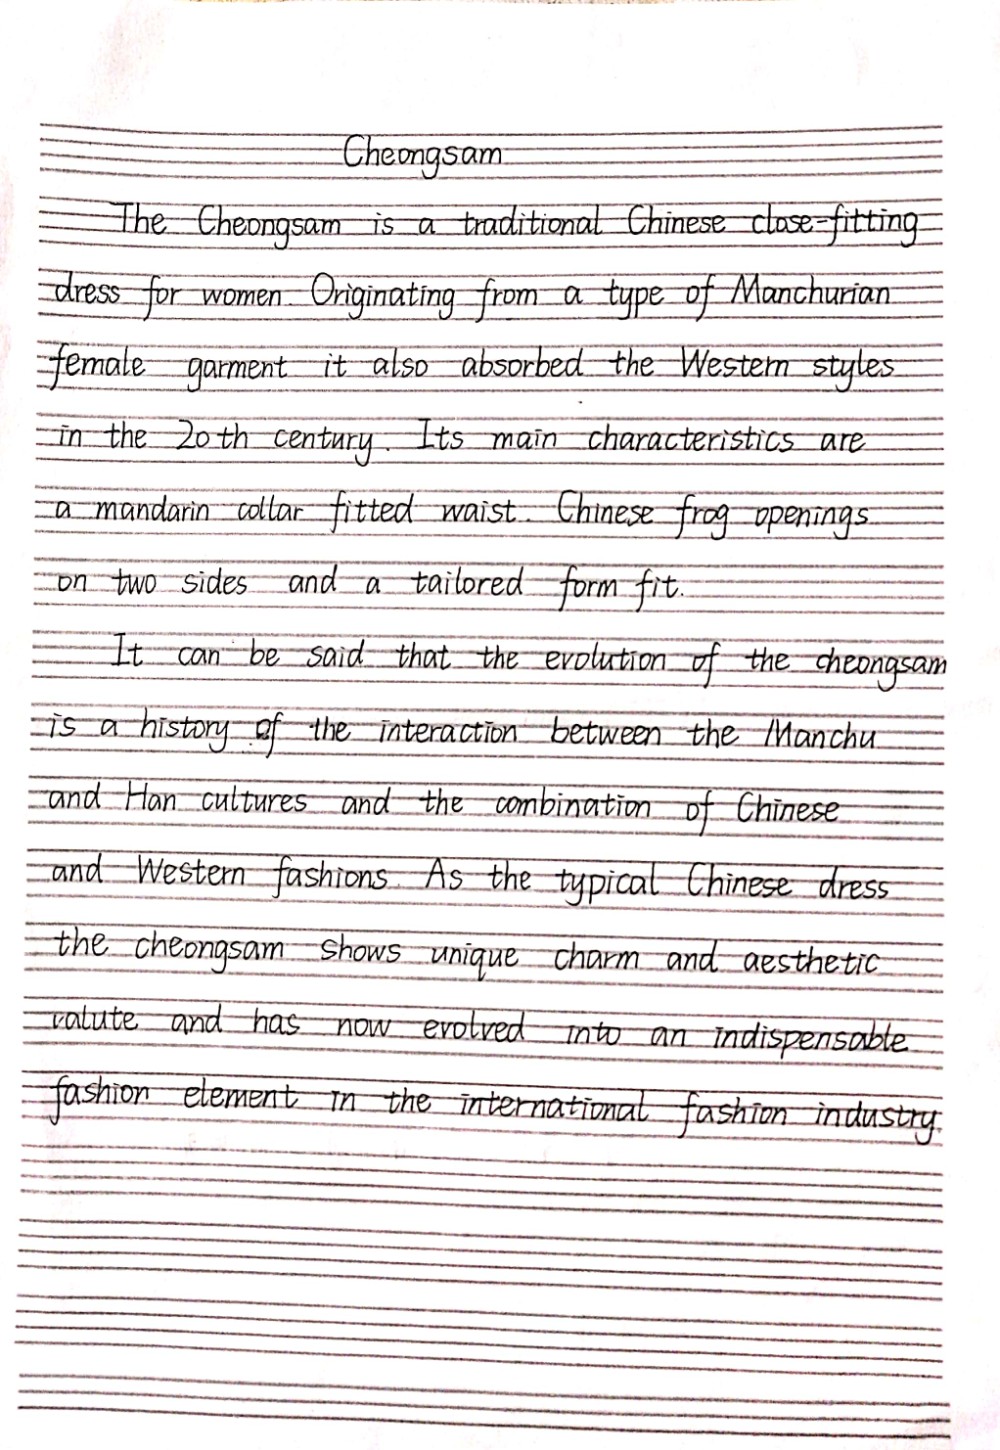 Cheongsam
The Cheongsam is a traditional Chinese close-fitting
dress for women Originating from a type of Manchurian
female garment it also absorbed the Western styles
in the 20th century. Its main characteristics are
a mandarin collar fitted waist. Chinese frog openings
on two sides and a tailored form fit.
It can be said that the evolution of the cheongsam
is a history of the interaction between the Manchu
and Han cultures and the combination of Chinese
and Western fashions. As the typical Chinese dress
the cheongsam shows unique charm and aesthetic
valute and has now evolved into an indispensable
fashion element in the international fashion industry.